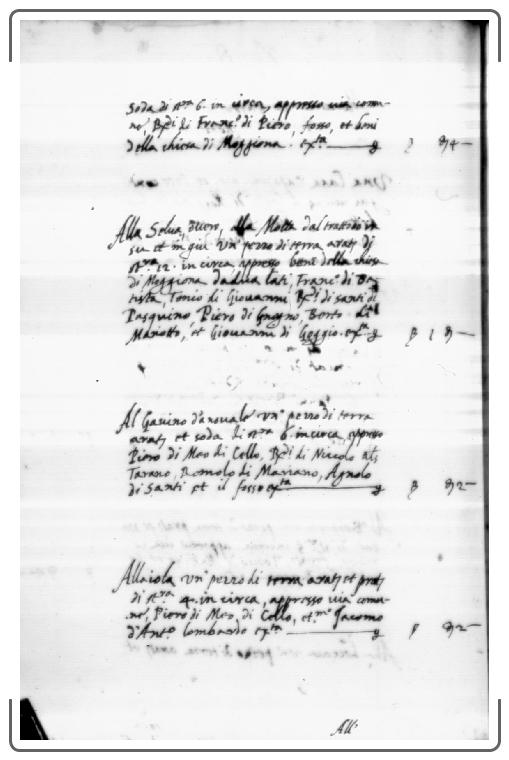 soda di st.ra 6. in circa, appresso via comu-
ne, B.di di Franc.o di Piero, fosso, et beni
della chiesa di Moggiona. ex.ta
Alla Selva, overo, alla Motta dal tratoio in
su et in giu un' pezzo di terra arat.
st.ra 12. in circa appresso beni della chiesa
di Moggiona da dua lati, Franc.o di Ba-
tista, Tonio di Giovanni, B.di di Santi di
Pasquino Piero di Berto di
Mariotto, et Giovanni di Geggio. ex.ta
Al Gavino d'anovale un' pezzo di terra
arat. et soda di st.ra 6. in circa, appresso
Piero di Meo di Cello, B.di di Nicolo
Tarano, Romolo di Mariano, Agnolo
di Santi et il fosso ex.ta
Allaiola un' pezzo di terra arat. et prat.
di st.ra 4. in circa, appresso via comu-
ne, Piero di Meo di Cello, et Jacomo
d'Ant.o lombardo ex.ta
All'